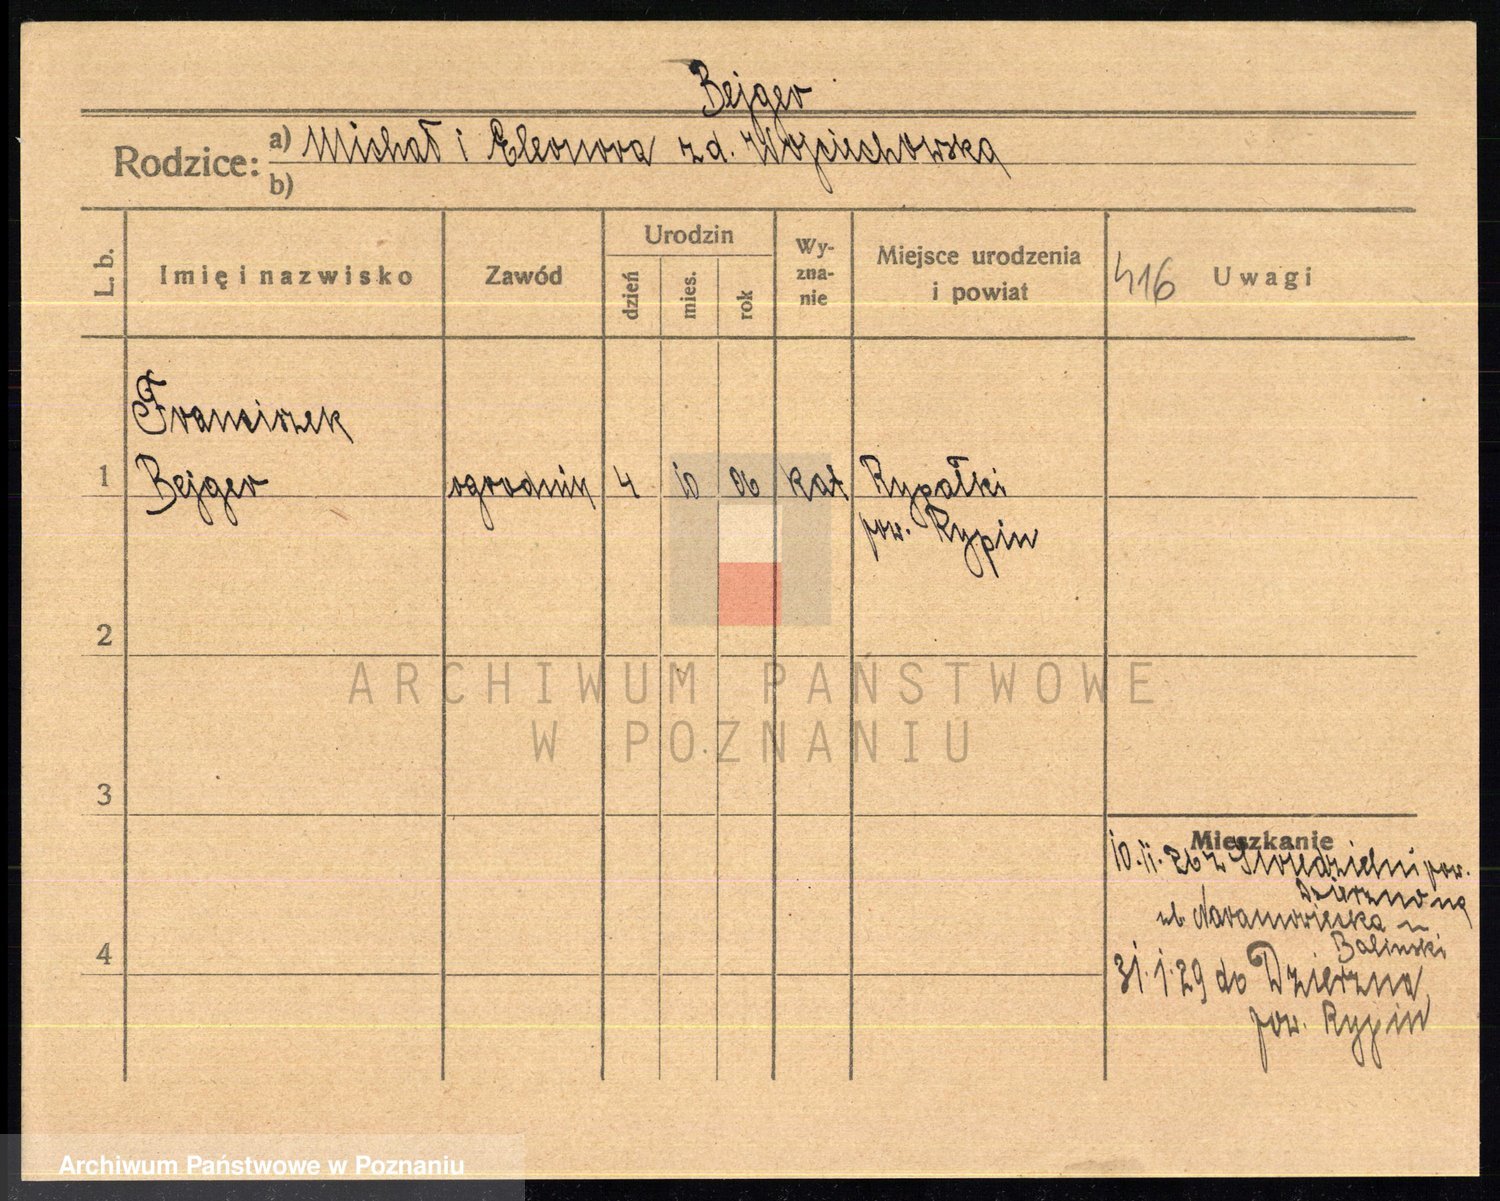 Bejger
Rodzice: a) Michał i Eleonora z d. Wojciechowska
b)
L. b.
Imię i nazwisko
Zawód
Urodzin
dzień
mies.
rok
Wy-
zna-
nie
Miejsce urodzenia
i powiat
416
Uwagi
Franciszek
1 Bejger ogrodnik 4 10 06 kat Rypałki
pow. Rypin
2
3
4
ARCHIWUM PAŃSTWOWE
W POZNANIU
Mieszkanie
10.11.26 z pow.
ul. Naramowicka
Baliński
31.1.29 do Dzierzna
pow. Rypin
Archiwum Państwowe w Poznaniu